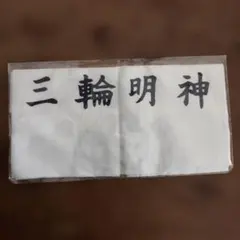 三輪明神